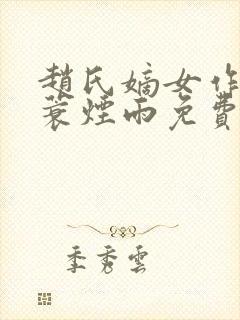 趙氏嫡女作
蓑煙雨免費
季秀雲